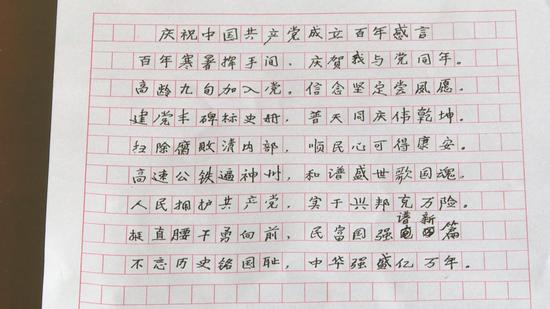 庆祝中国共产党成立百年感言
百年寒暑挥手间，庆贺我与党同年。
高龄九旬加入党。信念坚定尝夙愿。
建党丰碑标史册，普天同庆伟乾坤。
扫除腐败清内部，顺民心可得康安。
高速公铁遍神州，和谐盛世歌国魂。
人民拥护共产党，实干兴邦克万险。
挺直腰干勇向前，民富国强谱新篇
不忘历史铭国耻，中华强盛亿万年。